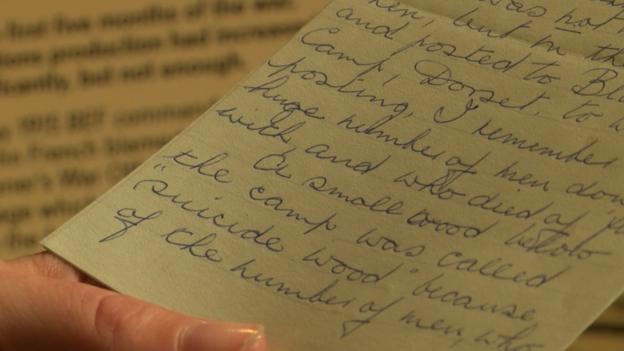 first five months of the war,
production had increased
but not enough.
1915 BEF
French
War
was not
but in the
and posted to
Camp, Dorset, to
posting, I remember
huge number of men down
with, and who died of,
A small wood below
the camp was called
"suicide wood" because
of the number of men, who